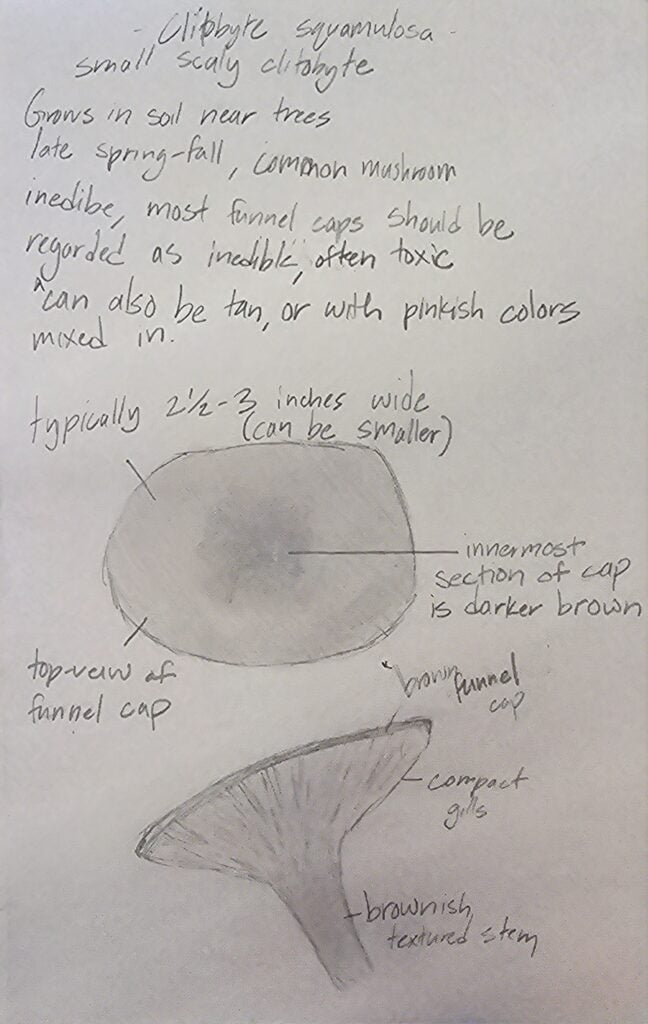 - Clitobyte squamulosa -
small scaly clitobyte
Grows in soil near trees
late spring-fall, common mushroom
inedibe, most funnel caps should be
regorded as inedible, often toxic
^can also be tan, or with pinkish colors
mixed in.
typically 2 1/2 - 3 inches wide
(can be smaller)
innermost
section of cap
is darker brown
top-veiw of
funnel cap
*brown funnel
cap
compact
gills
brownish,
textured stem